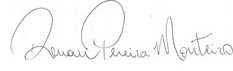 Renan Pereira Monteiro